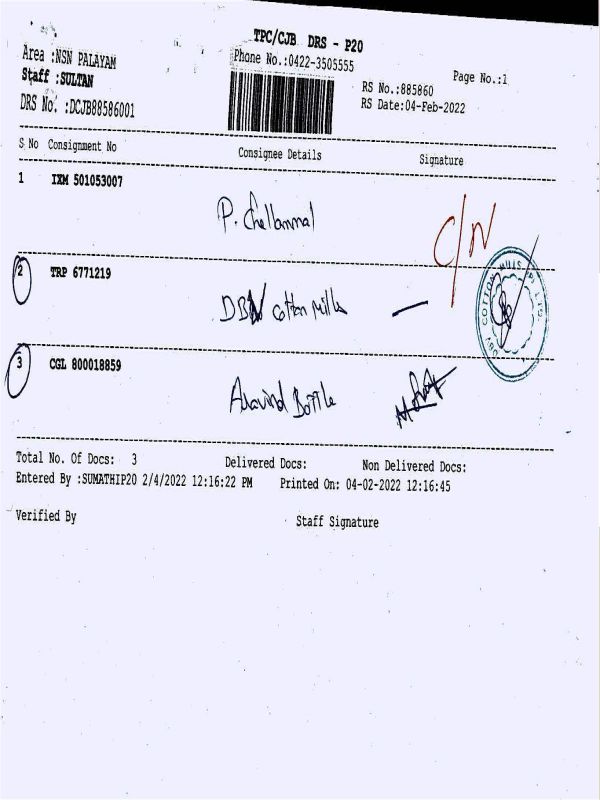 TPC/CJB DRS - P20
Area :NSN PALAYAM
Phone No.:0422-3505555
Page No.:1
Staff :SULTAN
RS No.:885860
DRS No. :DCJB88586001
RS Date:04-Feb-2022
S No Consignment No Consignee Details Signature
1 IXM 501053007
P. Chellammal
C/N
2 TRP 6771219
DBN Cotton Mills —
COTTON MILLS (P) LTD.
3 CGL 800018859
Aravind Bottle
Total No. Of Docs: 3 Delivered Docs: Non Delivered Docs:
Entered By :SUMATHIP20 2/4/2022 12:16:22 PM Printed On: 04-02-2022 12:16:45
Verified By Staff Signature